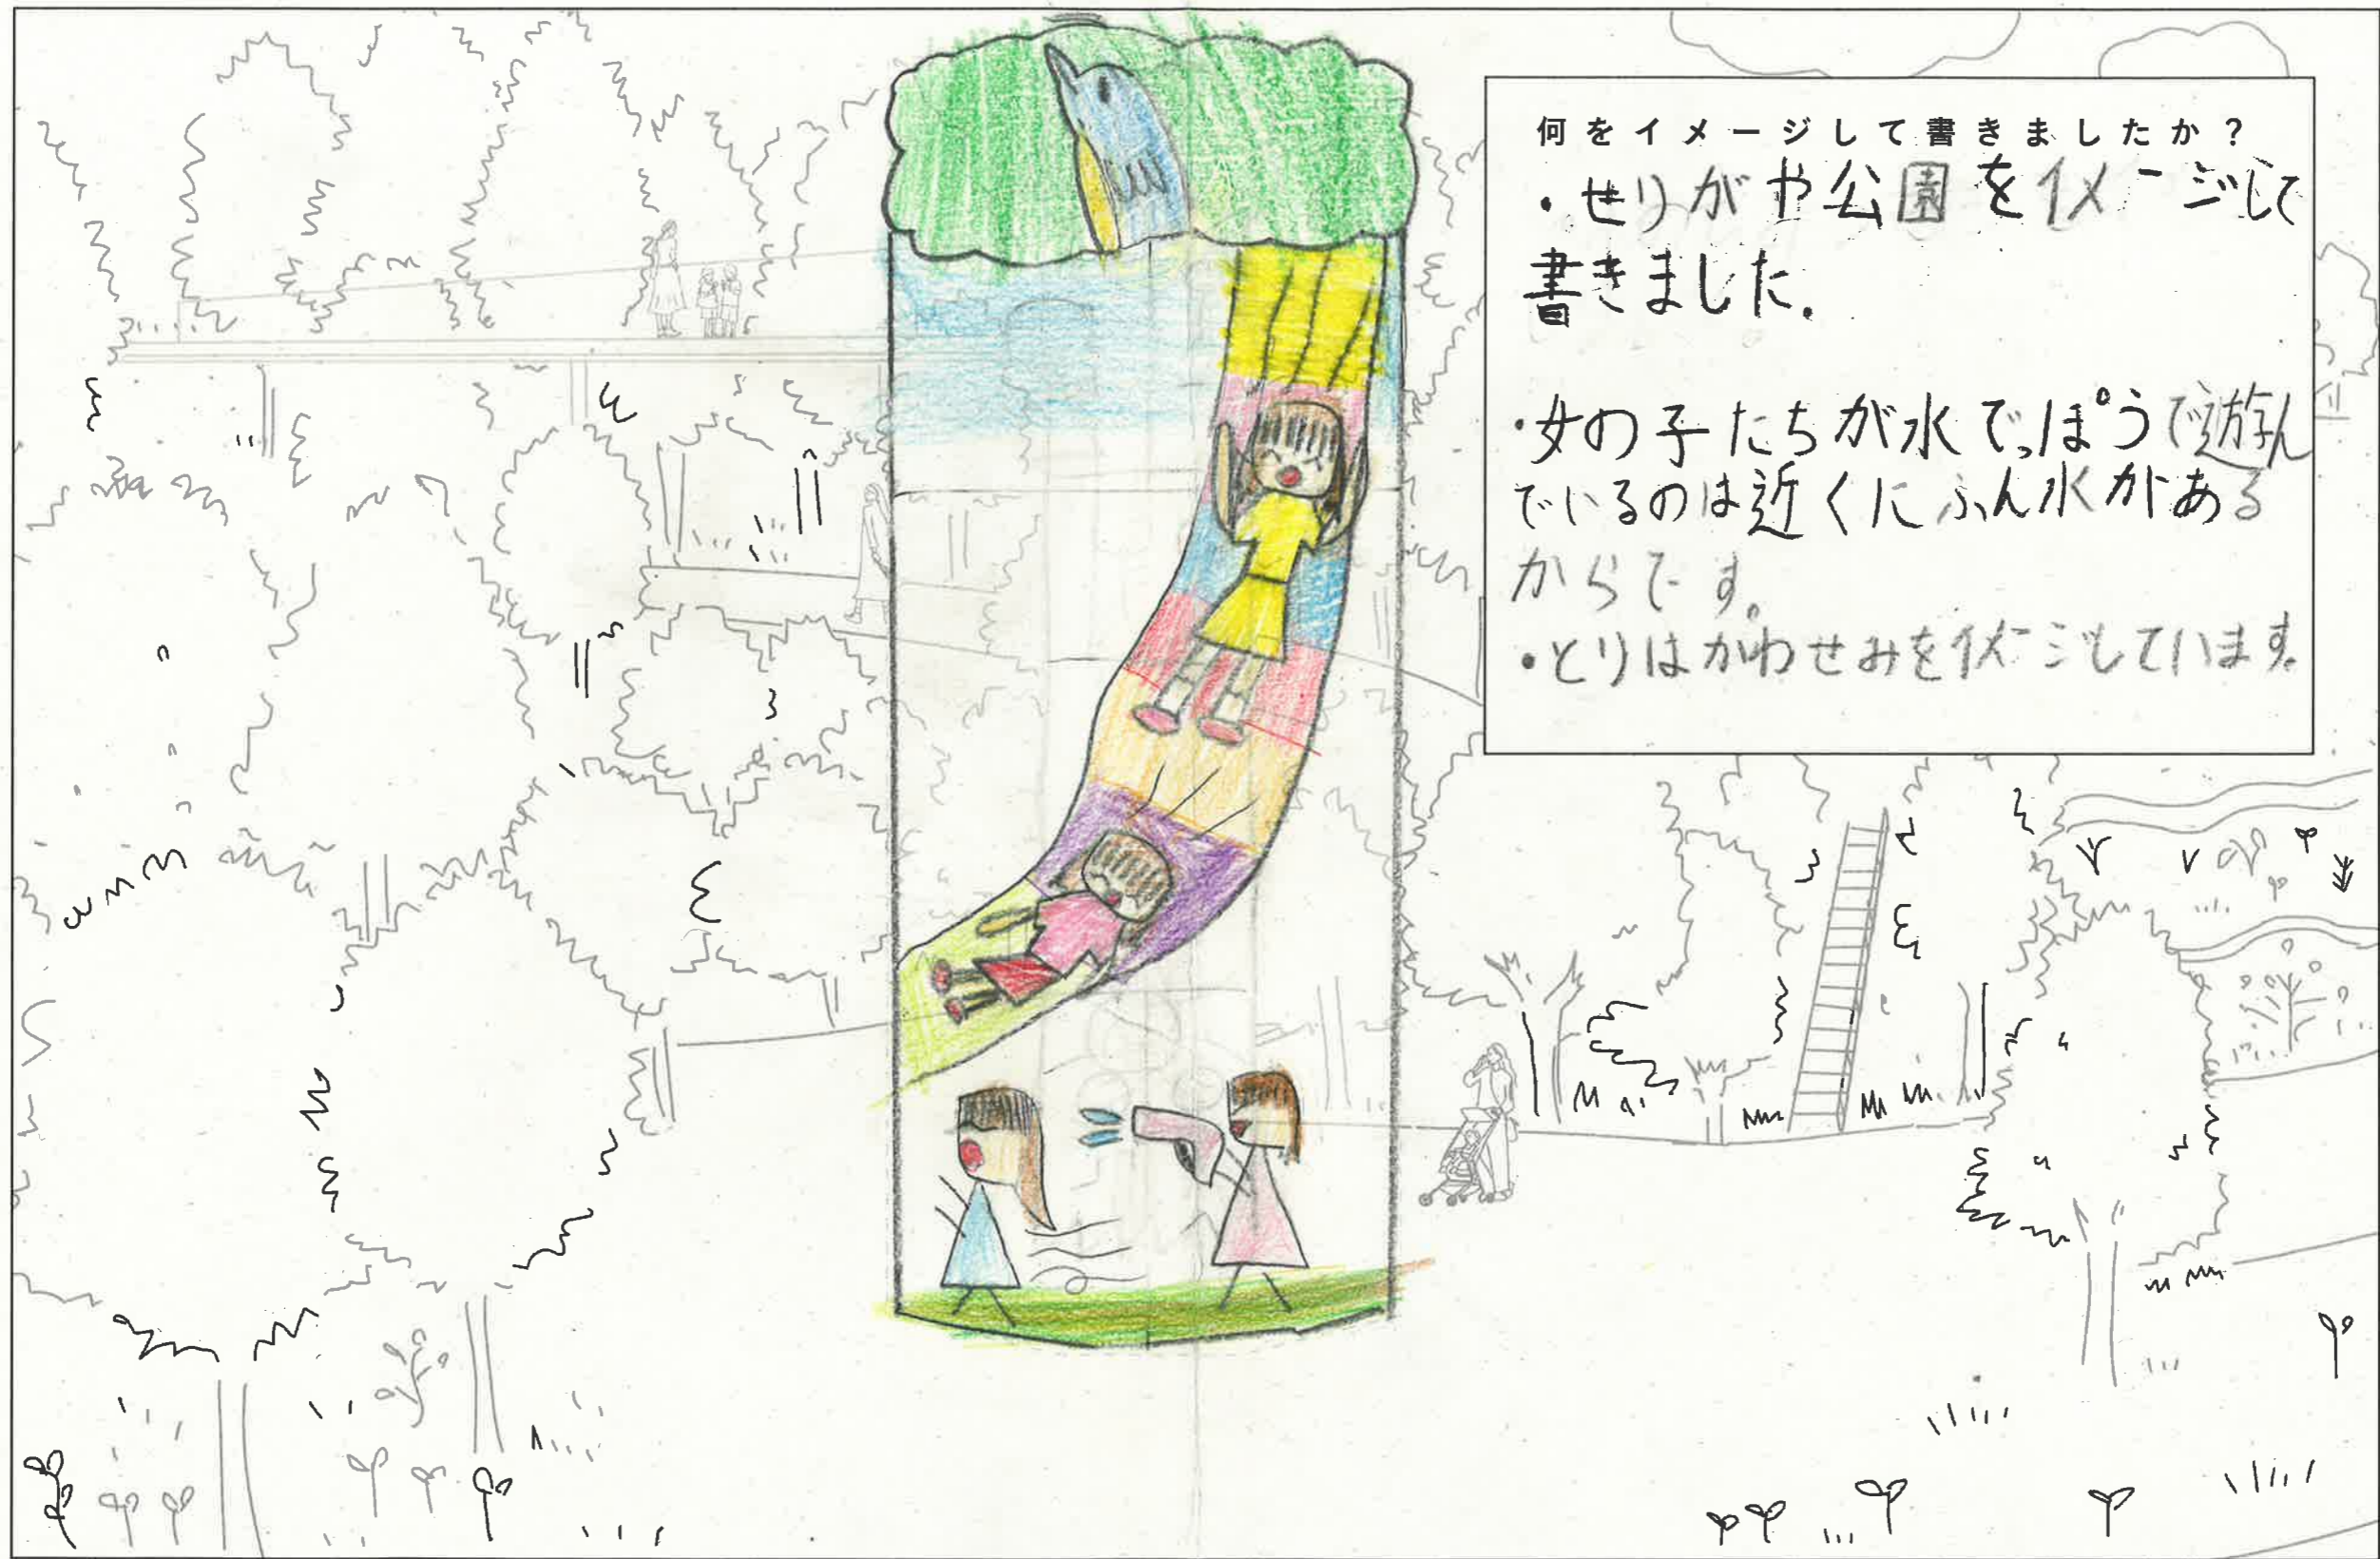 何をイメージして書きましたか？
・せりがや公園をイメージして
書きました.
・女の子たちが水でっぽうで遊ん
でいるのは近くにふん水がある
からです。
・とりはかわせみをイメージしています。